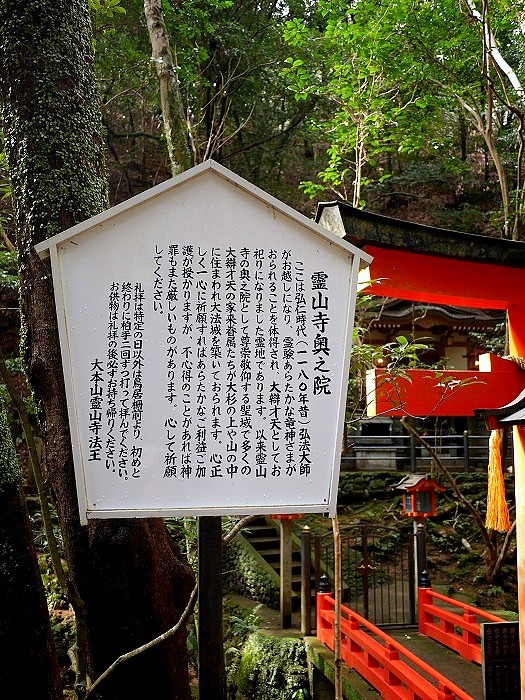 霊山寺奥之院
ここは弘仁時代（一一八〇年昔）弘法大師
がお越しになり、霊験あらたかな竜神さまが
おられることを体得され、大辯才天としてお
祀りになりました霊地であります。以来霊山
寺の奥之院として尊崇敬仰する聖域で多くの
大辯才天の家来眷属たちが大杉の上や山の中
に住まわれ大法城を築いておられます。心正
しく一心に祈願すればあらたかなご利益ご加
護が授かりますが、不心得のことがあれば神
罪もまた厳しいものがあります。心して祈願
してください。
礼拝は特定の日以外は鳥居柵前より、初めと
終わりに柏手二回ずつ打って拝んでください。
お供物は礼拝の後必ずお持ち帰りください。
大本山霊山寺法王